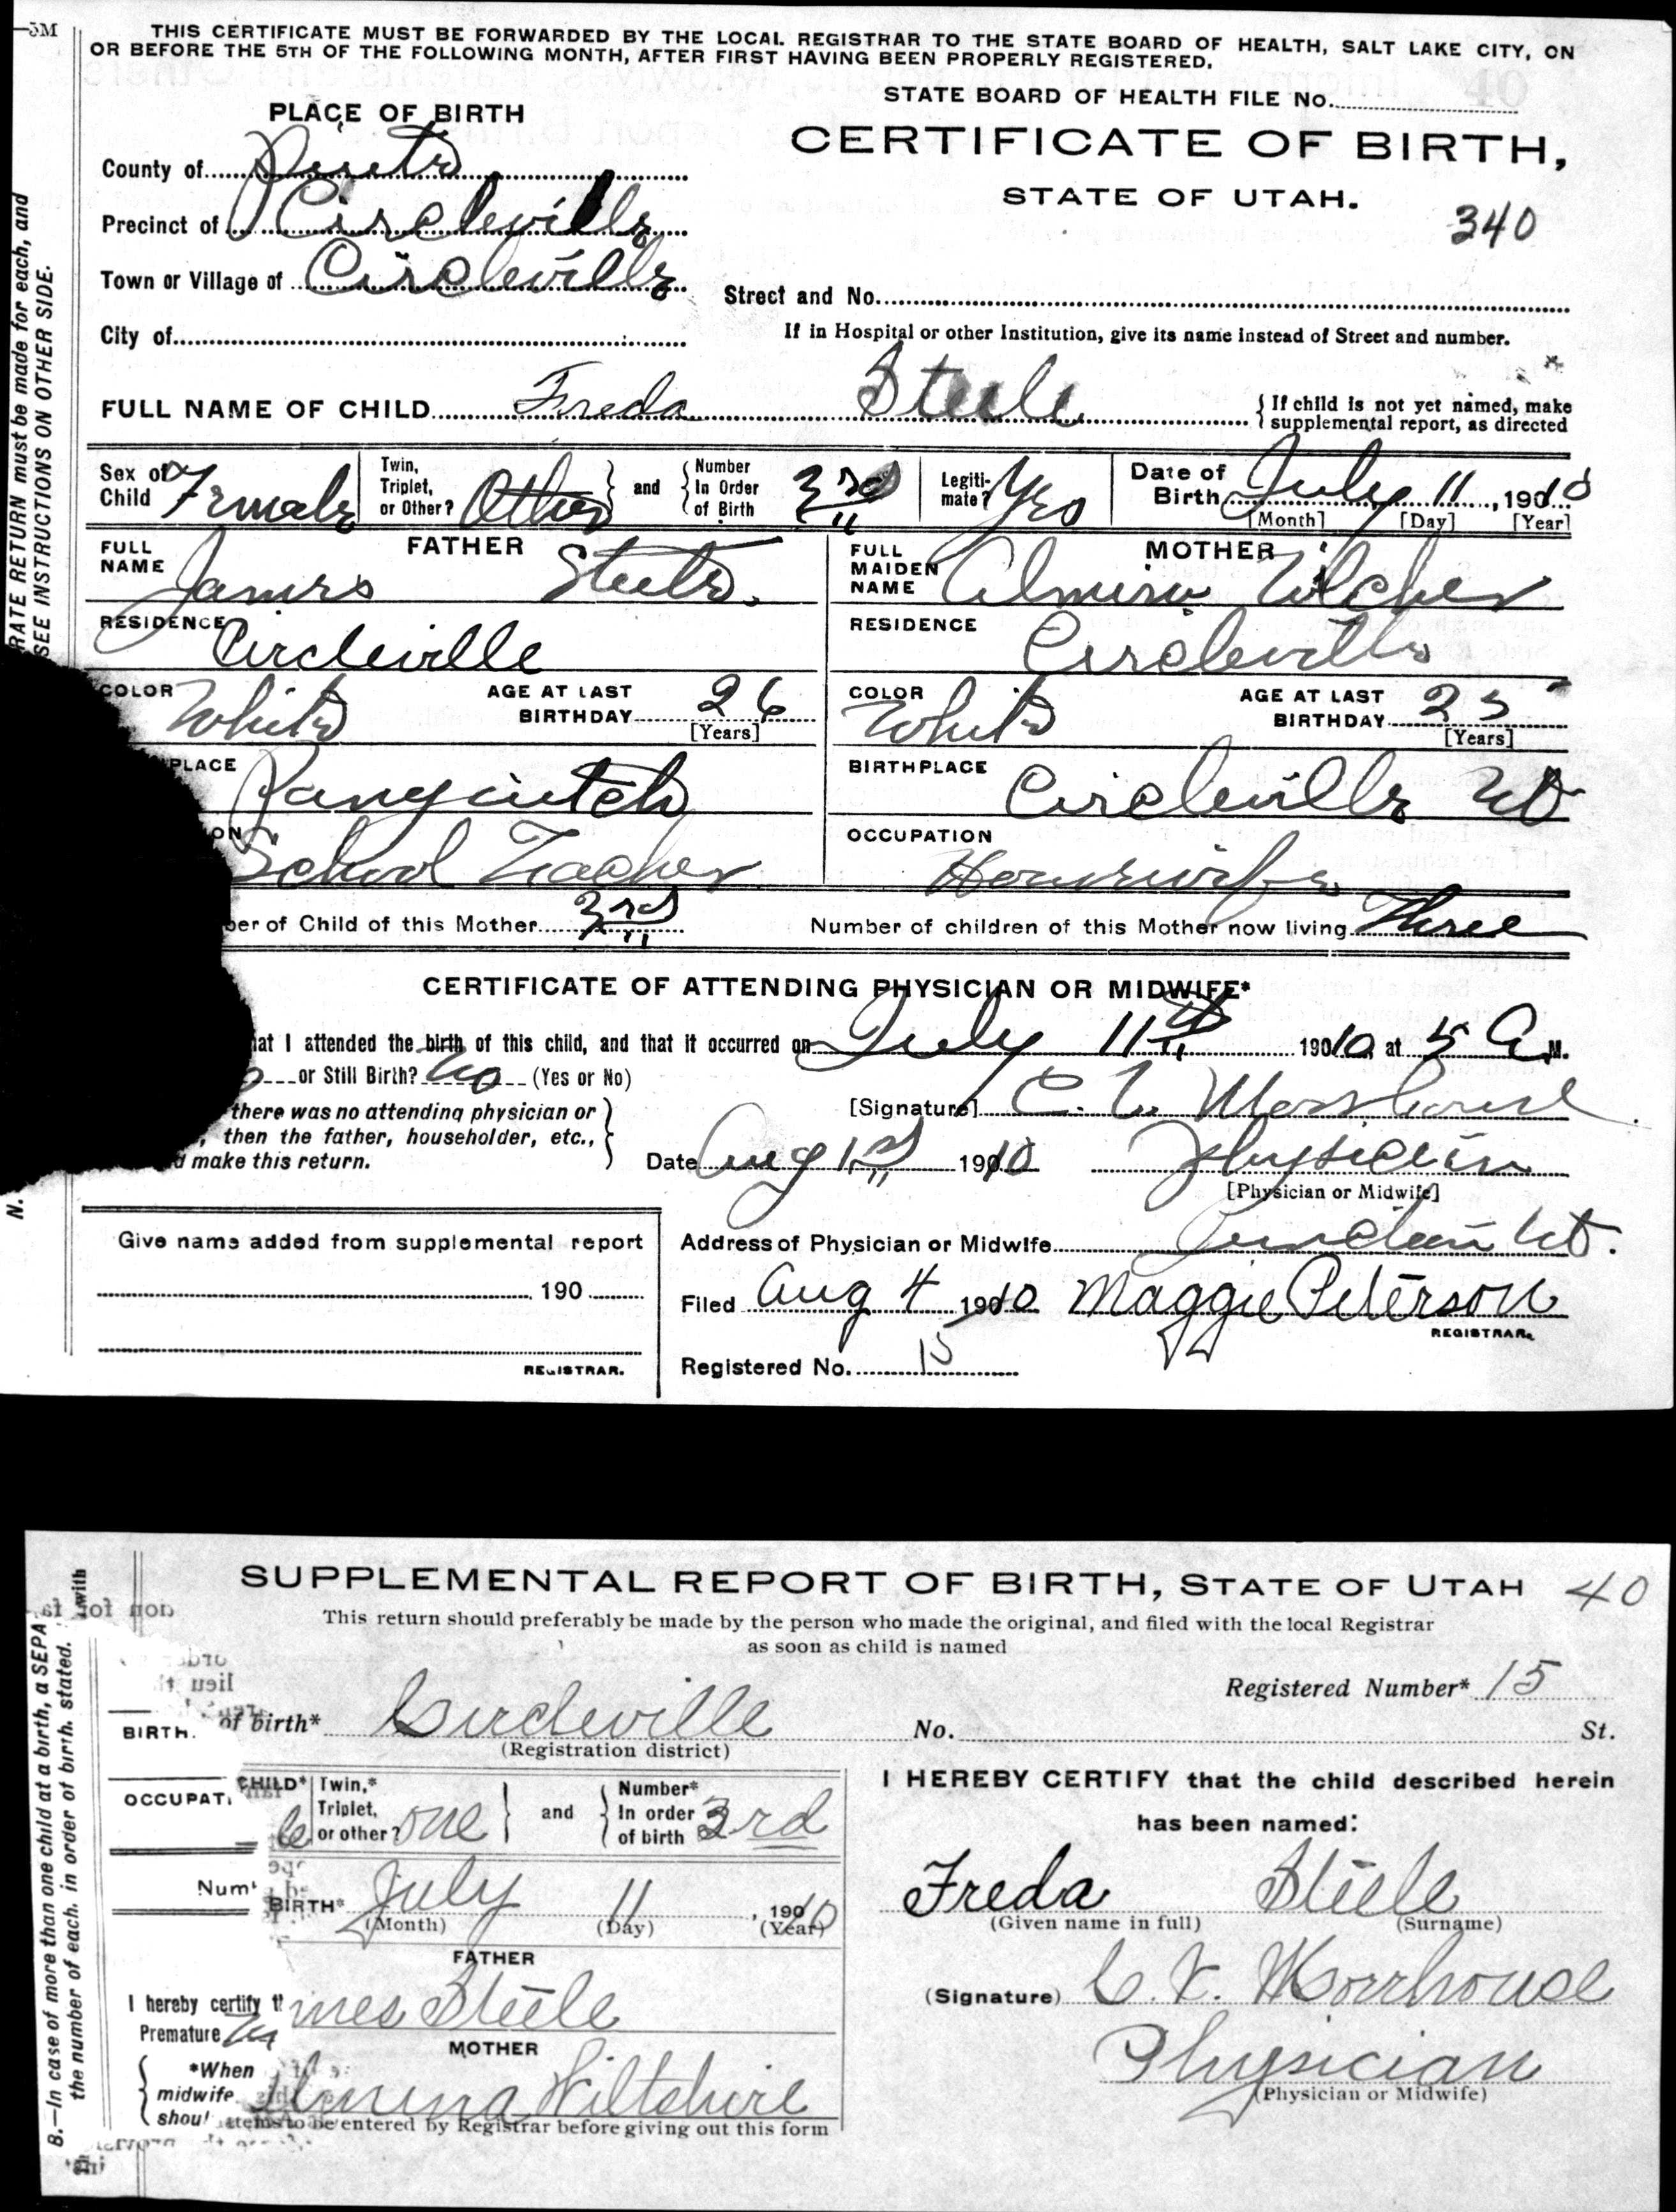 5M
THIS CERTIFICATE MUST BE FORWARDED BY THE LOCAL REGISTRAR TO THE STATE BOARD OF HEALTH, SALT LAKE CITY, ON
OR BEFORE THE 5TH OF THE FOLLOWING MONTH, AFTER FIRST HAVING BEEN PROPERLY REGISTERED.
STATE BOARD OF HEALTH FILE No.
PLACE OF BIRTH
CERTIFICATE OF BIRTH,
STATE OF UTAH.
340
County of Piute
Precinct of Circleville
Town or Village of Circleville
Street and No.
City of
If in Hospital or other Institution, give its name instead of Street and number.
FULL NAME OF CHILD Freda Steele
If child is not yet named, make supplemental report, as directed
Sex of Child Female
Twin, Triplet, or Other? Other and Number In Order of Birth 3rd
Legitimate? Yes
Date of Birth July 11, 1910
[Month] [Day] [Year]
FATHER
FULL NAME James Steele.
MOTHER
FULL MAIDEN NAME Almira
RESIDENCE Circleville
RESIDENCE Circleville
COLOR White AGE AT LAST BIRTHDAY 26 [Years]
COLOR White AGE AT LAST BIRTHDAY 25 [Years]
PLACE Panguitch
BIRTHPLACE Circleville Ut
ON School Teacher
OCCUPATION Housewife
ber of Child of this Mother 3rd
Number of children of this Mother now living Three
CERTIFICATE OF ATTENDING PHYSICIAN OR MIDWIFE*
hat I attended the birth of this child, and that it occurred on July 11th 1910, at 5 A. M.
or Still Birth? No (Yes or No)
there was no attending physician or
, then the father, householder, etc.,
d make this return.
[Signature] C. V. Morrhouse
Date Aug 1st 1910 Physician
[Physician or Midwife]
Give name added from supplemental report
190
REGISTRAR.
Address of Physician or Midwife Junction Ut.
Filed Aug 4 1910 Maggie Peterson
REGISTRAR.
Registered No. 15
RATE RETURN must be made for each, and
SEE INSTRUCTIONS ON OTHER SIDE.
N.
SUPPLEMENTAL REPORT OF BIRTH, STATE OF UTAH 40
This return should preferably be made by the person who made the original, and filed with the local Registrar
as soon as child is named
Registered Number* 15
BIRTH.
of birth* Circleville No. St.
(Registration district)
OCCUPAT
CHILD* le
Twin,* Triplet, or other? one and Number* In order of birth 3rd
I HEREBY CERTIFY that the child described herein
has been named:
Num
BIRTH* July 11, 1910
(Month) (Day) (Year)
Freda Steele
(Given name in full) (Surname)
FATHER
I hereby certify t
mes Steele
Premature
(Signature) C. V. Morrhouse
MOTHER
*When
midwife
shoul
Almira Wiltshire
Physician
(Physician or Midwife)
items to be entered by Registrar before giving out this form
B.—In case of more than one child at a birth, a SEPA
the number of each, in order of birth, stated.
with